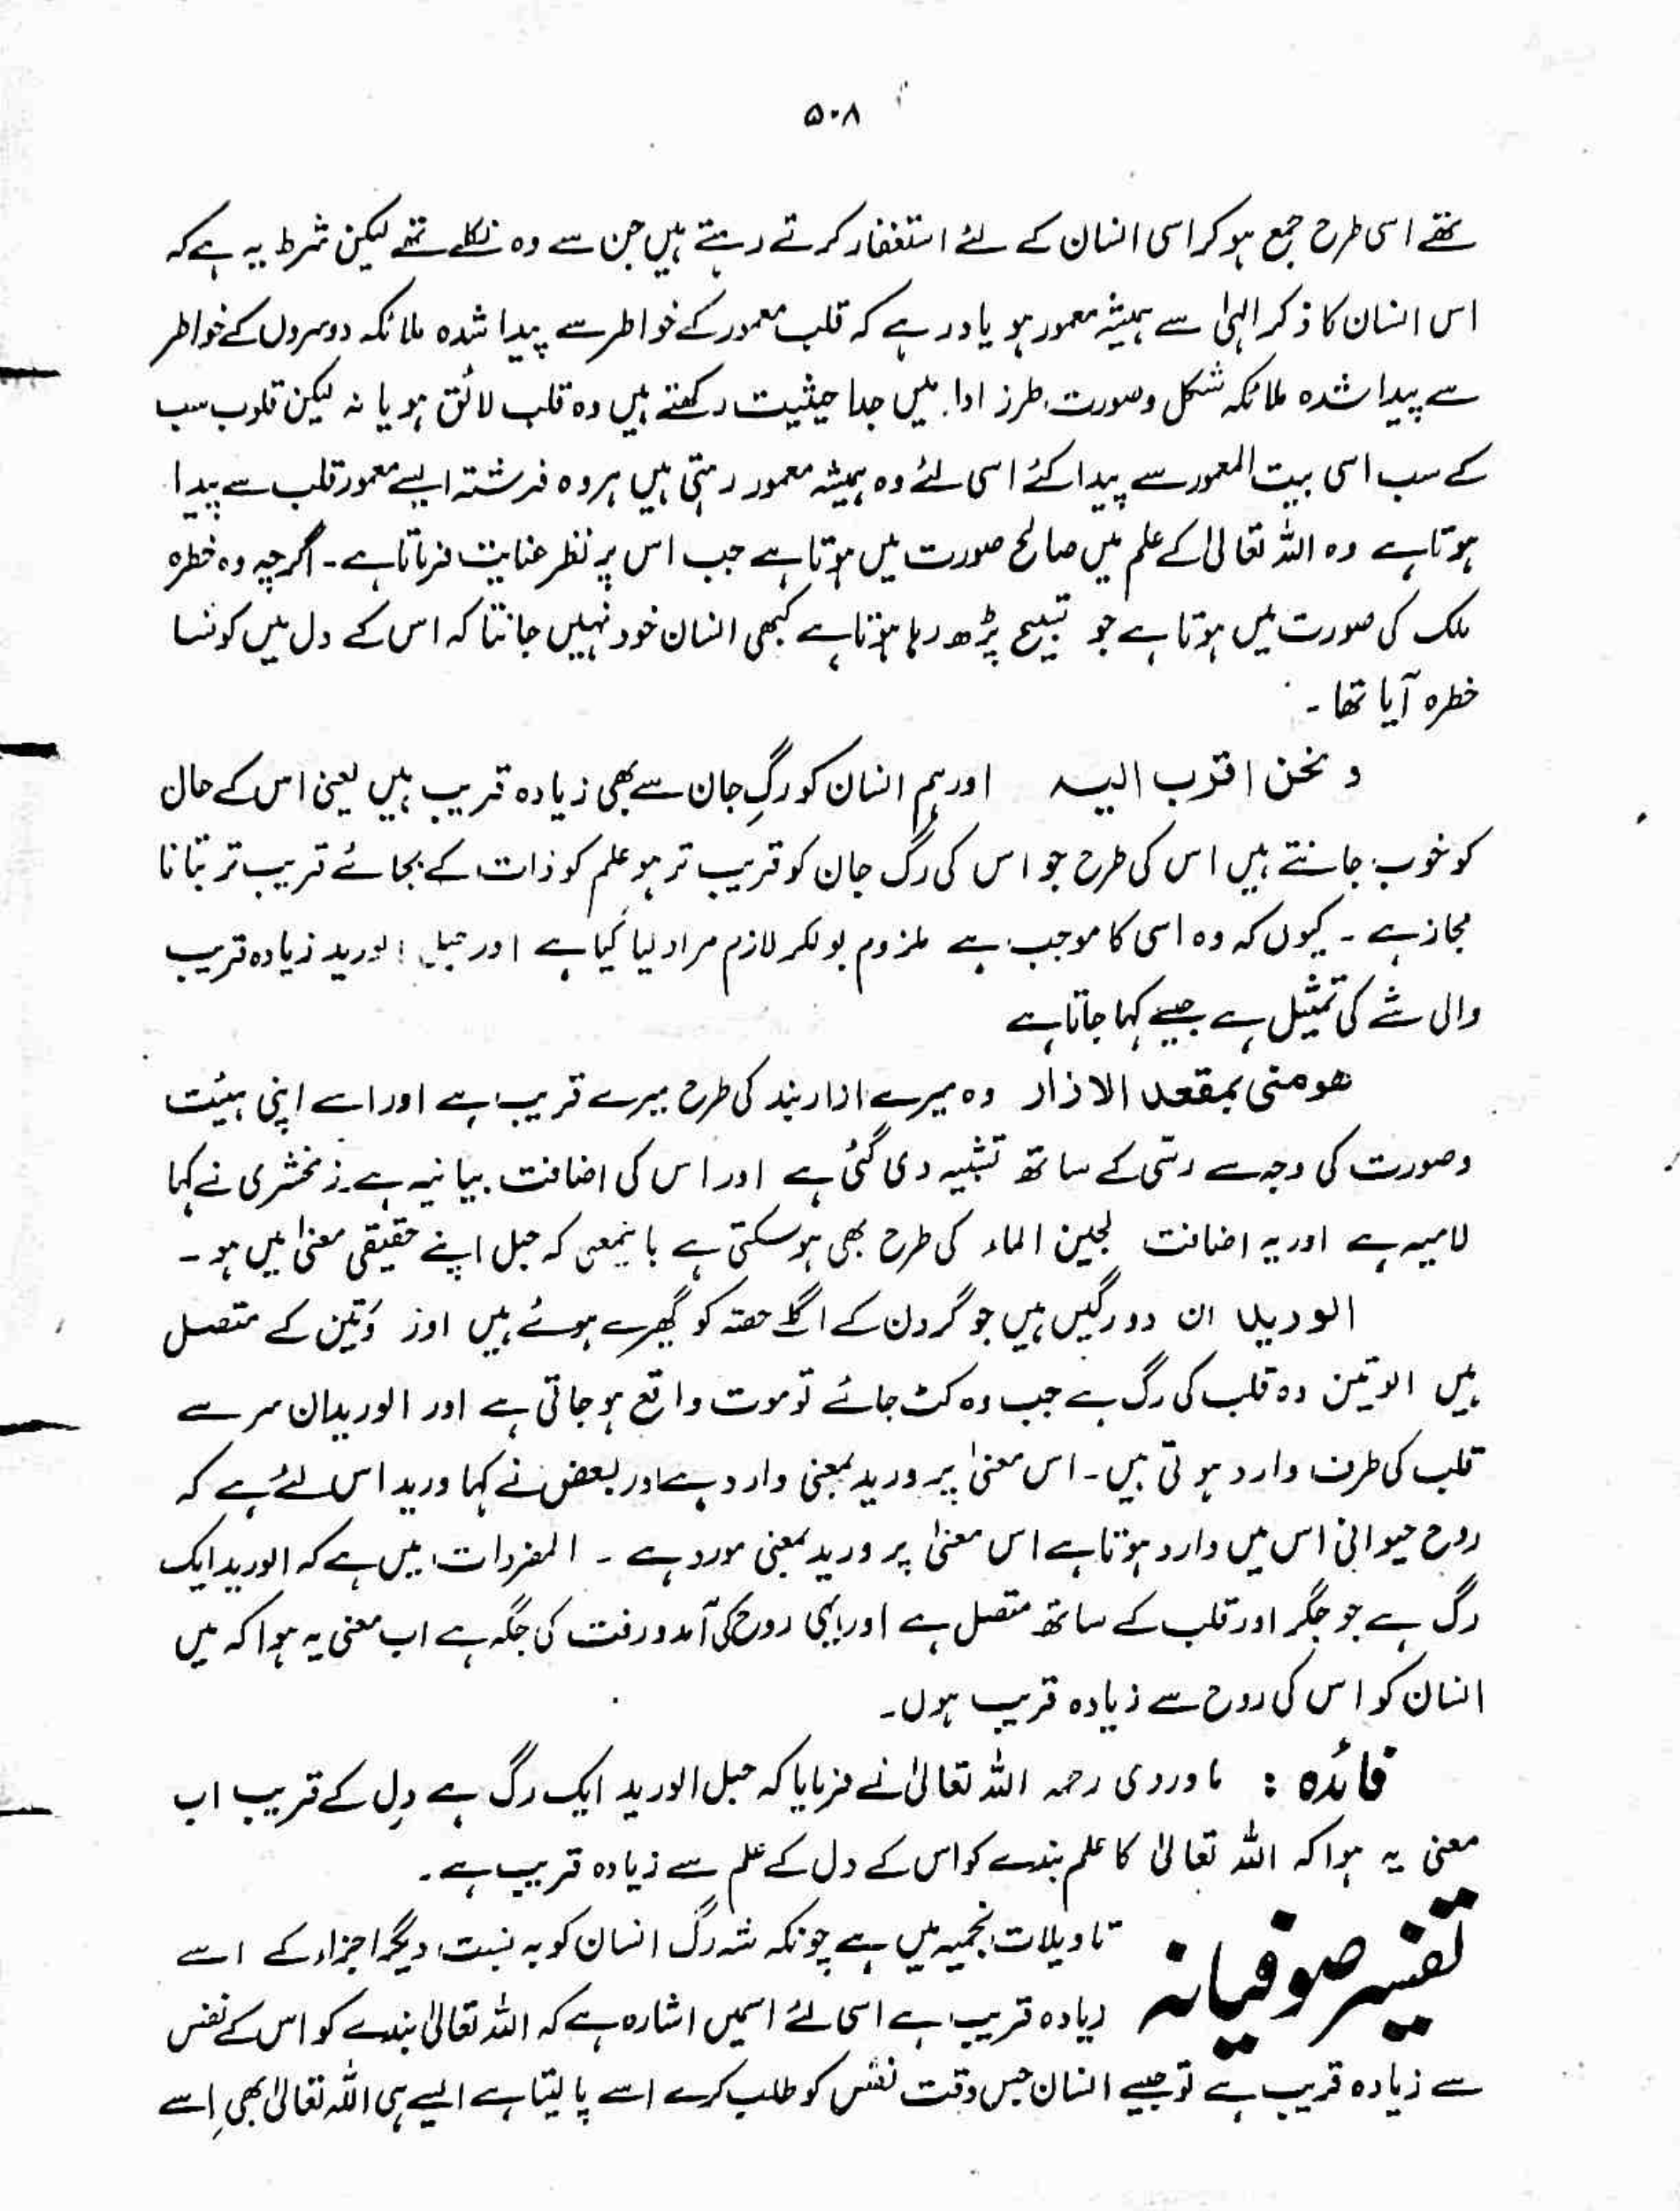 ۵۰۸
تھے اسی طرح جمع ہو کر اسی انسان کے لئے استغفار کرتے رہتے ہیں جن سے وہ نکلے تھے لیکن شرط یہ ہے کہ
اس انسان کا ذکر الہیٰ سے ہمیشہ معمور ہو یاد رہے کہ قلب معمور کے خواطر سے پیدا شدہ ملائکہ دوسروں کے خواطر
سے پیدا شدہ ملائکہ شکل و صورت، طرز ادا میں جدا حیثیت رکھتے ہیں وہ قلب لائق ہو یا نہ لیکن قلوب سب
کے سب اسی بیت المعمور سے پیدا کئے اسی لئے وہ ہمیشہ معمور رہتی ہیں ہر وہ فرشتہ ایسے معمور قلب سے پیدا
ہوتا ہے وہ اللہ تعالیٰ کے علم میں صالح صورت میں ہوتا ہے جب اس پر نظر عنایت فرماتا ہے ۔ اگرچہ وہ خطرہ
ملک کی صورت میں ہوتا ہے جو تسبیح پڑھ رہا ہوتا ہے کبھی انسان خود نہیں جانتا کہ اس کے دل میں کونسا
خطرہ آیا تھا ۔
و نحن اقرب الیہ اور ہم انسان کو رگِ جان سے بھی زیادہ قریب ہیں یعنی اس کے حال
کو خوب جانتے ہیں اس کی طرح جو اس کی رگ جان کو قریب تر ہو علم کو ذات کے بجائے قریب تر بتانا
مجاز ہے ۔ کیوں کہ وہ اسی کا موجب ہے ملزوم بولکر لازم مراد لیا گیا ہے اور حبل الورید زیادہ قریب
والی شے کی تمثیل ہے جیسے کہا جاتا ہے
ھو منی بمقعد الازار وہ میرے ازار بند کی طرح میرے قریب ہے اور اسے اپنی ہیئت
و صورت کی وجہ سے رسّی کے ساتھ تشبیہ دی گئی ہے اور اس کی اضافت بیانیہ ہے۔ زمخشری نے کہا
لامیہ ہے اور یہ اضافت لجین الماء کی طرح بھی ہو سکتی ہے باینمعی کہ حبل اپنے حقیقی معنیٰ میں ہو ۔
الورید ان دو رگیں ہیں جو گردن کے اگلے حصّہ کو گھیرے ہوئے ہیں اور وَتین کے متصل
ہیں الوتین وہ قلب کی رگ ہے جب وہ کٹ جائے تو موت واقع ہو جاتی ہے اور الوریدان سر سے
قلب کی طرف وارد ہوتی ہیں ۔ اس معنیٰ پر ورید بمعنی وارد ہے اور بعض نے کہا ورید اس لئے ہے کہ
روح حیوانی اس میں وارد ہوتا ہے اس معنیٰ پر ورید بمعنی مورد ہے ۔ المفردات میں ہے کہ الورید ایک
رگ ہے جو جگر اور قلب کے ساتھ متصل ہے اور یہی روح کی آمد و رفت کی جگہ ہے اب معنی یہ ہوا کہ میں
انسان کو اس کی روح سے زیادہ قریب ہوں۔
فائدہ : ماوردی رحمہ اللہ تعالیٰ نے فرمایا کہ حبل الورید ایک رگ ہے دِل کے قریب اب
معنی یہ ہوا کہ اللہ تعالیٰ کا علم بندے کو اس کے دل کے علم سے زیادہ قریب ہے ۔
تفسیر صوفیانہ تاویلات نجمیہ میں ہے چونکہ شہ رگ انسان کو بہ نسبت دیگر اجزاء کے اسے
زیادہ قریب ہے اسی لئے اسمیں اشارہ ہے کہ اللہ تعالیٰ بندے کو اس کے نفس
سے زیادہ قریب ہے تو جیسے انسان جس وقت نفس کو طلب کرے اسے پا لیتا ہے ایسے ہی اللہ تعالیٰ بھی اِسے